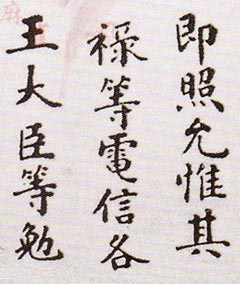 即照允惟其
祿等電信各
王大臣等勉